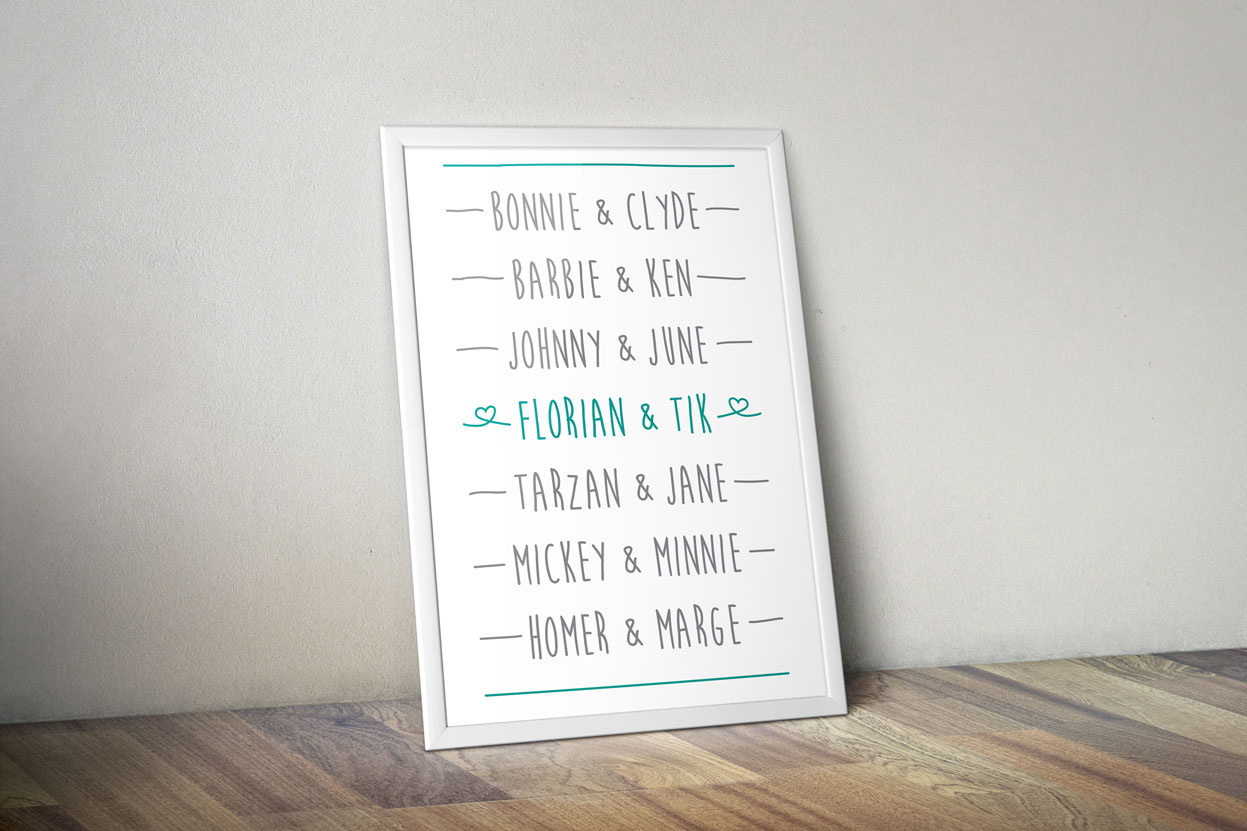 BONNIE & CLYDE
BARBIE & KEN
JOHNNY & JUNE
FLORIAN & TIK
TARZAN & JANE
MICKEY & MINNIE
HOMER & MARGE